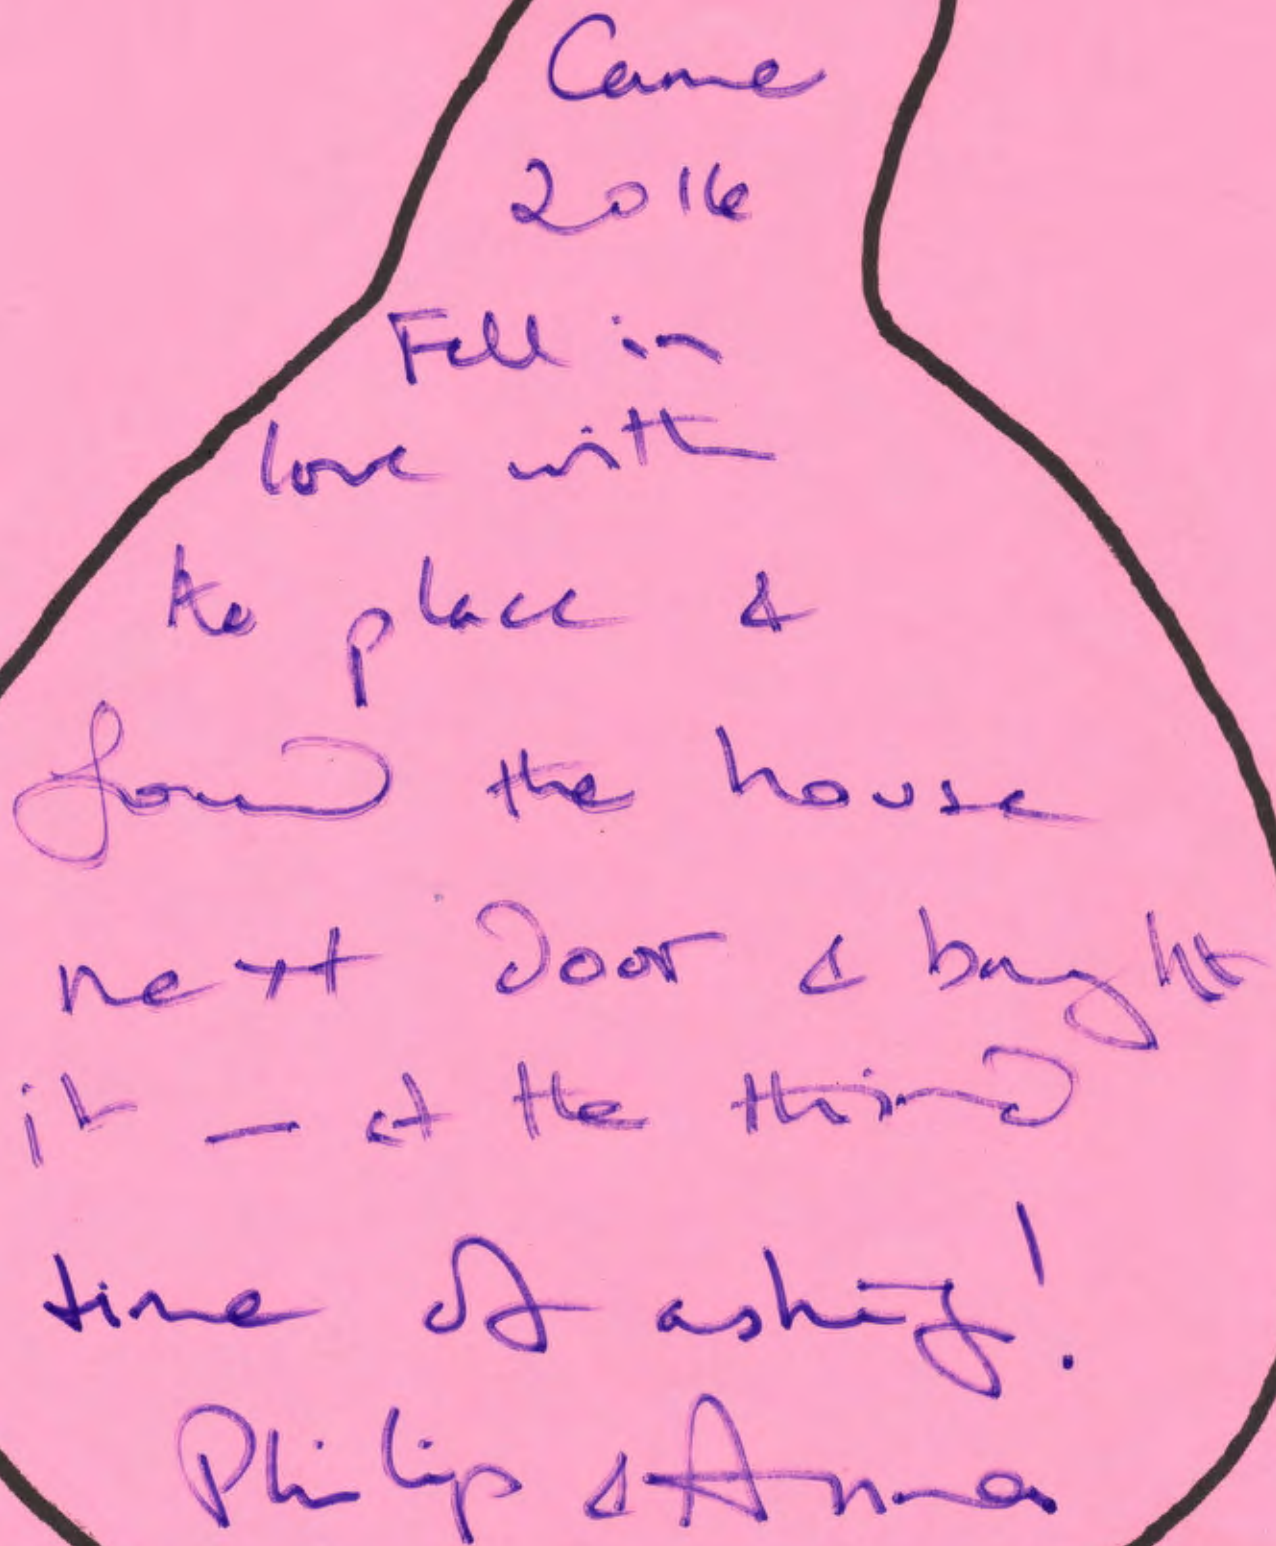 Came
2016
Fell in
love with
the place &
found the house
next door & bought
it - at the third
time of asking!
Philip & Anna